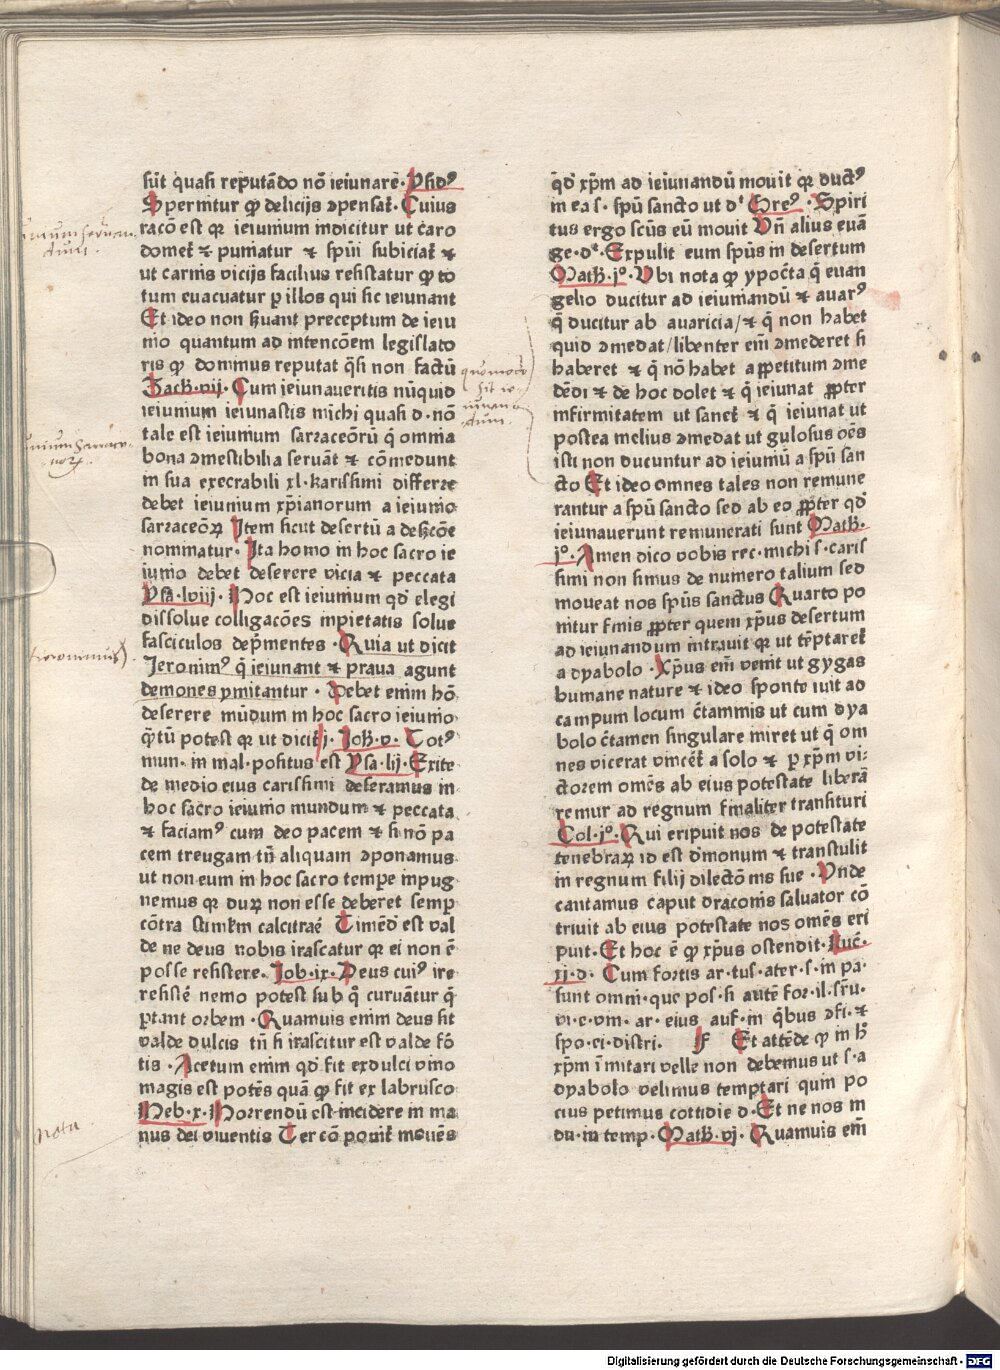 sūt quasi reputādo nō ieiunare· Phꝰ
Spernitur qꝫ delicijs ɔpensatꝭ· Cuius
racō est qꝛ ieiunium indicitur ut caro
dometꝭ ⁊ puniatur ⁊ spūi subiciatꝭ ⁊
ut carnis vicijs facilius resistatur qꝫ to
tum euacuatur p illos qui sic ieiunant
Et ideo non ẜuant preceptum de ieiu
nio quantum ad intencōem legislato
ris qꝫ dominus reputat q̄si non factū
Zach·vij· Cum ieiunaueritis nūquid
ieiunium ieiunastis michi quasi d·nō
tale est ieiunium sarraceōrū q̄ omnia
bona ɔmestibilia seruāt ⁊ cōmedunt
in sua execrabili xl·karissimi differre
debet ieiunium xp̄ianorum a ieiunio
sarraceōꝝ Item sicut desertū a desc̄oe
nominatur· Ita homo in hoc sacro ie
iunio debet deserere vicia ⁊ peccata
ysa·lviij· Hoc est ieiunium qd̄ elegi
dissolue colligacōes inpietatis solue
fasciculos dep̄mentes· Quia ut dicit
Ieronimꝰ q̄ ieiunant ⁊ praua agunt
demones ymitantur· Debet enim hō
deserere mūdum in hoc sacro ieiunio
q̄tū potest qꝛ ut dicitꝭ j· Ioh·v· Totꝰ
mun·in mal·positus est ysa·lij· Exite
de medio eius carissimi deseramus in
hoc sacro ieiunio mundum ⁊ peccata
⁊ faciamꝰ cum deo pacem ⁊ si nō pa
cem treugam tn̄ aliquam ɔponamus
ut non eum in hoc sacro tempe inpug
nemus qꝛ duꝝ non esse deberet semp
cōtra stimlm calcitrare Timēd est val
de ne deus nobis irascatur qꝛ ei non ē
posse resistere· Iob·ix· Deus cuiꝰ ire
resistē nemo potest sub q̄ curuātur q̄
ptant orbem· Quamuis enim deus sit
valde dulcis tn̄ si irascitur est valde fō
tis· Acetum enim qd̄ fit ex dulci vino
magis est potēs quā qꝫ fit ex labrusco
Heb·x· Horrendū est incidere in ma
nus dei viuentis Tercō ponitꝭ mouēs
qd̄ xp̄m ad ieiunandū mouit qꝛ ductꝰ
in ea s· spū sancto ut dꝭ Greꝰ· Spiri
tus ergo scūs eū mouit Vn̄ alius euā
ge·dꝭ· Expulit eum spūs in desertum
Math·jº· Vbi nota qꝫ ypoc̄ta q̄ euan
gelio ducitur ad ieiunandū ⁊ auarꝰ
q̄ ducitur ab auaricia/⁊ q̄ non habet
quid ɔmedat/libenter em̄ ɔmederet si
haberet ⁊ q̄ nō habet appetitum ɔme
dēdi ⁊ de hoc dolet ⁊ q̄ ieiunat ꝓpter
infirmitatem ut sanetꝭ ⁊ q̄ ieiunat ut
postea melius ɔmedat ut gulosus oēs
isti non ducuntur ad ieiuniū a spū san
cto Et ideo omnes tales non remune
rantur a spū sancto sed ab eo ꝓpter qd̄
ieiunauerunt remunerati sunt Math·
jº· Amen dico vobis rec·michi s·caris
simi non simus de numero talium sed
moueat nos spūs sanctus Quarto po
nitur finis ꝓpter quem xp̄us desertum
ad ieiunandum intrauit qꝛ ut tēptaretꝭ
a dyabolo· Xp̄us em̄ venit ut gygas
humane nature ⁊ ideo sponte iuit ad
campum locum c̄taminis ut cum dya
bolo c̄tamen singulare iniret ut q̄ om
nes vicerat vincētꝭ a solo ⁊ p xp̄m vi·
ctorem omēs ab eius potestate liberā
remur ad regnum finaliter transituri
Col·jº· Qui eripuit nos de potestate
tenebraꝝ id est dmonum ⁊ transtulit
in regnum filij dilectōnis sue· Vnde
cantamus caput draconis saluator cō
triuit ab eius potestate nos omēs eri
puit· Et hoc ē qꝫ xp̄us ostendit· Luc̄·
xj·d· Cum fortis ar·tus·ater·s·in pa·
sunt omni·que pos·si autē for·il·sru·
vi·e·vm·ar·eius auf·in q̄bus ɔfi·⁊
spo·ei·distri. F Et attēde qꝫ in hͦ
xp̄m īmitari velle non debemus ut s·a
dyabolo velimus temptari quin po
cius petimus cottidie d·Et ne nos in
du·in temp·Math·vj· Quamuis em̄
Hieronimus
nota
quomodo
sit ie-
iunan-
dum.
Digitalisierung gefördert durch die Deutsche Forschungsgemeinschaft · DFG